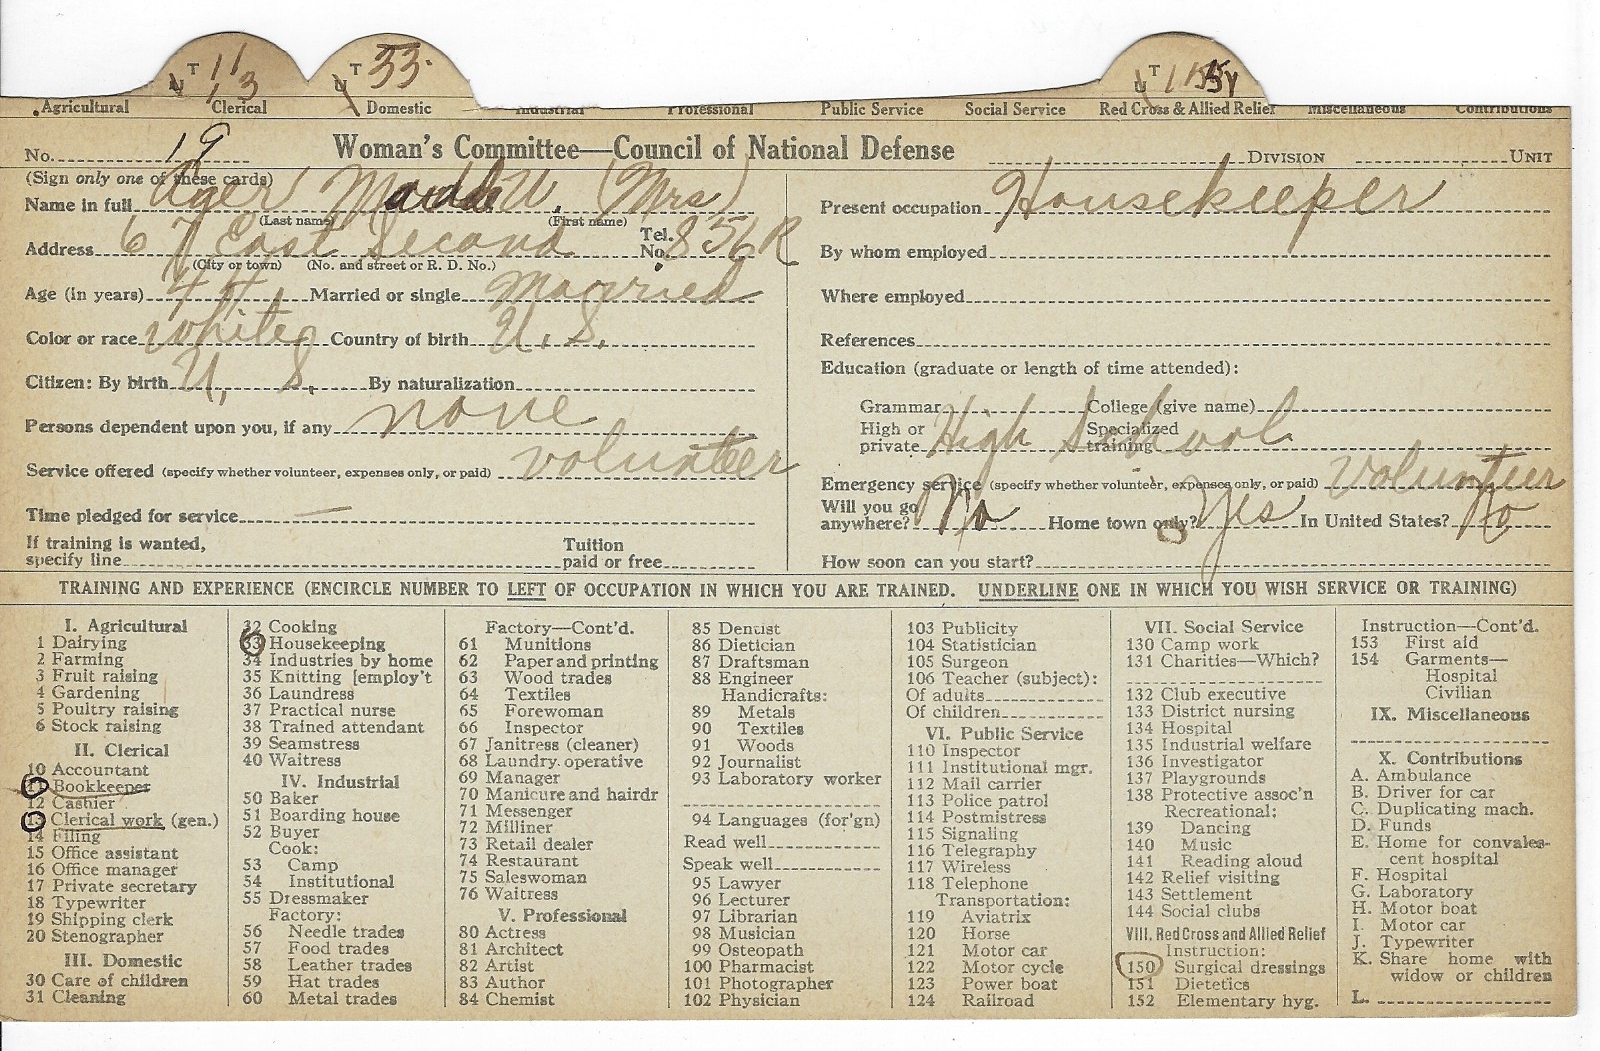 T 11 T 33. T
13
Agricultural Clerical Domestic Industrial Professional Public Service Social Service Red Cross & Allied Relief Miscellaneous Contributions
No. 19 Woman's Committee—Council of National Defense DIVISION UNIT
(Sign only one of these cards)
Name in full Ager (Mrs)
(Last name) (First name)
Address 67 East Second Tel. No. 856R
(City or town) (No. and street or R. D. No.)
Age (in years) 44 Married or single Married
Color or race white Country of birth U.S.
Citizen: By birth U.S. By naturalization
Persons dependent upon you, if any none
Service offered (specify whether volunteer, expenses only, or paid) volunteer
Time pledged for service —
If training is wanted, specify line Tuition paid or free
Present occupation Housekeeper
By whom employed
Where employed
References
Education (graduate or length of time attended):
Grammar College (give name)
High or private High School Specialized training
Emergency service (specify whether volunteer, expenses only, or paid) Volunteer
Will you go anywhere? No Home town only? Yes In United States? No
How soon can you start?
TRAINING AND EXPERIENCE (ENCIRCLE NUMBER TO LEFT OF OCCUPATION IN WHICH YOU ARE TRAINED. UNDERLINE ONE IN WHICH YOU WISH SERVICE OR TRAINING)
I. Agricultural
1 Dairying
2 Farming
3 Fruit raising
4 Gardening
5 Poultry raising
6 Stock raising
II. Clerical
10 Accountant
11 Bookkeeper
12 Cashier
13 Clerical work (gen.)
14 Filing
15 Office assistant
16 Office manager
17 Private secretary
18 Typewriter
19 Shipping clerk
20 Stenographer
III. Domestic
30 Care of children
31 Cleaning
32 Cooking
33 Housekeeping
34 Industries by home
35 Knitting [employ't
36 Laundress
37 Practical nurse
38 Trained attendant
39 Seamstress
40 Waitress
IV. Industrial
50 Baker
51 Boarding house
52 Buyer
Cook:
53 Camp
54 Institutional
55 Dressmaker
Factory:
56 Needle trades
57 Food trades
58 Leather trades
59 Hat trades
60 Metal trades
Factory—Cont'd.
61 Munitions
62 Paper and printing
63 Wood trades
64 Textiles
65 Forewoman
66 Inspector
67 Janitress (cleaner)
68 Laundry operative
69 Manager
70 Manicure and hairdr
71 Messenger
72 Milliner
73 Retail dealer
74 Restaurant
75 Saleswoman
76 Waitress
V. Professional
80 Actress
81 Architect
82 Artist
83 Author
84 Chemist
85 Dentist
86 Dietician
87 Draftsman
88 Engineer
Handicrafts:
89 Metals
90 Textiles
91 Woods
92 Journalist
93 Laboratory worker
94 Languages (for'gn)
Read well
Speak well
95 Lawyer
96 Lecturer
97 Librarian
98 Musician
99 Osteopath
100 Pharmacist
101 Photographer
102 Physician
103 Publicity
104 Statistician
105 Surgeon
106 Teacher (subject):
Of adults
Of children
VI. Public Service
110 Inspector
111 Institutional mgr.
112 Mail carrier
113 Police patrol
114 Postmistress
115 Signaling
116 Telegraphy
117 Wireless
118 Telephone
Transportation:
119 Aviatrix
120 Horse
121 Motor car
122 Motor cycle
123 Power boat
124 Railroad
VII. Social Service
130 Camp work
131 Charities—Which?
132 Club executive
133 District nursing
134 Hospital
135 Industrial welfare
136 Investigator
137 Playgrounds
138 Protective assoc'n
Recreational:
139 Dancing
140 Music
141 Reading aloud
142 Relief visiting
143 Settlement
144 Social clubs
VIII. Red Cross and Allied Relief
Instruction:
150 Surgical dressings
151 Dietetics
152 Elementary hyg.
Instruction—Cont'd.
153 First aid
154 Garments—
Hospital
Civilian
IX. Miscellaneous
X. Contributions
A. Ambulance
B. Driver for car
C. Duplicating mach.
D. Funds
E. Home for convales-
cent hospital
F. Hospital
G. Laboratory
H. Motor boat
I. Motor car
J. Typewriter
K. Share home with
widow or children
L.